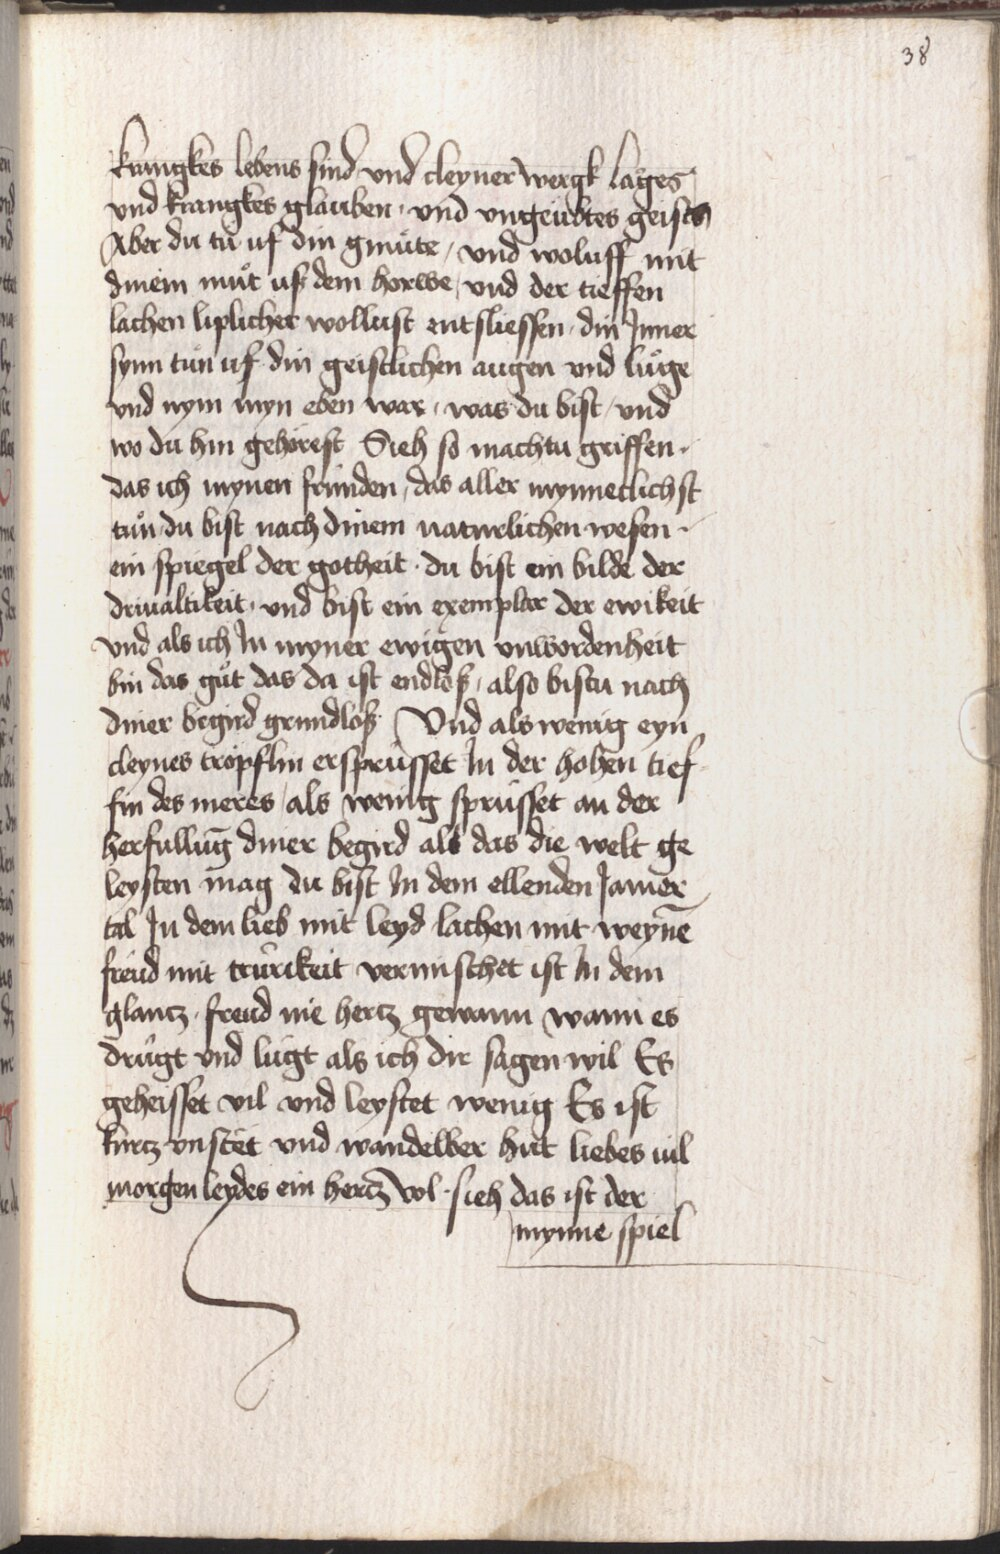 38
krangkes lebens sind vnd cleyner wergk lages
vnd krangkes glauben · vnd vngeubtes geists
Aber du tů uf din gmůte / vnd woluff mit
dinem můt uß dem horwe / vnd der tieffen
lachen liplicher wollust entsliessen · din Inner
synn tůn uf din geistlichen augen vnd lůge
vnd nym myn eben war / was du bist / vnd
wo du hin gehörest Sieh so machtu griffen ·
das ich mynen frunden / das aller mynneclichst
tůn du bist nach dinem naturlichen wesen ·
ein spiegel der gotheit · du bist ein bilde der
driualtikeit · vnd bist ein exemplar der ewikeit
vnd als ich In myner ewigen vnwordenheit
bin das gůt das da ist endloß / also bistu nach
diner begird grundloß · Vnd als wenig eyn
cleynes tröpflin ersprüsset In der hohen tief
fin des meres / als wenig sprüsset an der
herfullūg diner begird als das die welt ge
leysten mag du bist In dem ellenden Jamer
tal In dem lieb mit leyd lachen mit weynē
freud mit trurikeit vermischet ist In dem
glantz · freud nie hertz gewann wann es
drügt vnd lügt als ich dir sagen wil Es
geheisset vil vnd leystet wenig Es ist
kurtz vnstet vnd wandelber hut liebes uil
morgen leydes ein hertz vol · sieh das ist der
mynne spiel